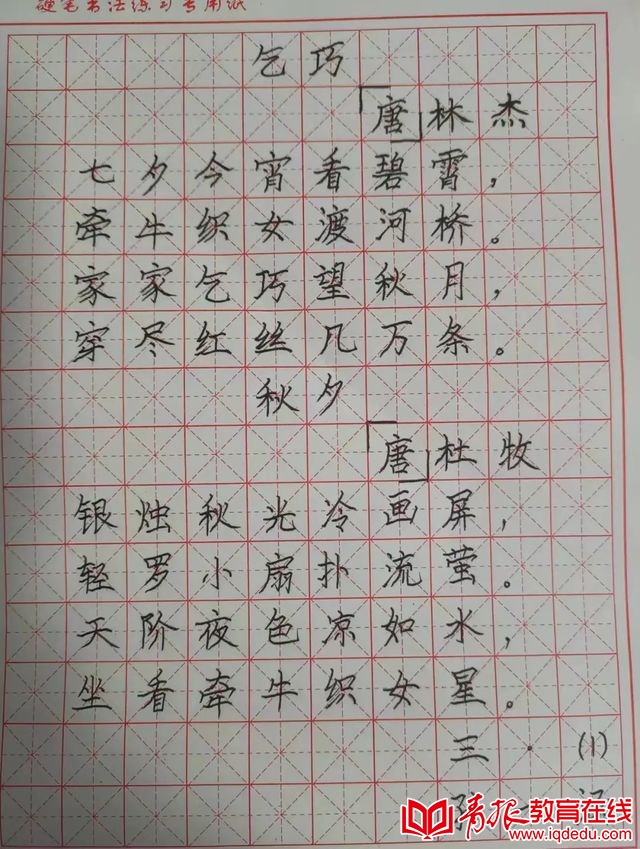 硬笔书法练习专用纸
乞巧
「唐」林杰
七夕今宵看碧霄，
牵牛织女渡河桥。
家家乞巧望秋月，
穿尽红丝几万条。
秋夕
「唐」杜牧
银烛秋光冷画屏，
轻罗小扇扑流萤。
天阶夜色凉如水，
坐看牵牛织女星。
三·(1)
青报教育在线
www.iqdedu.com